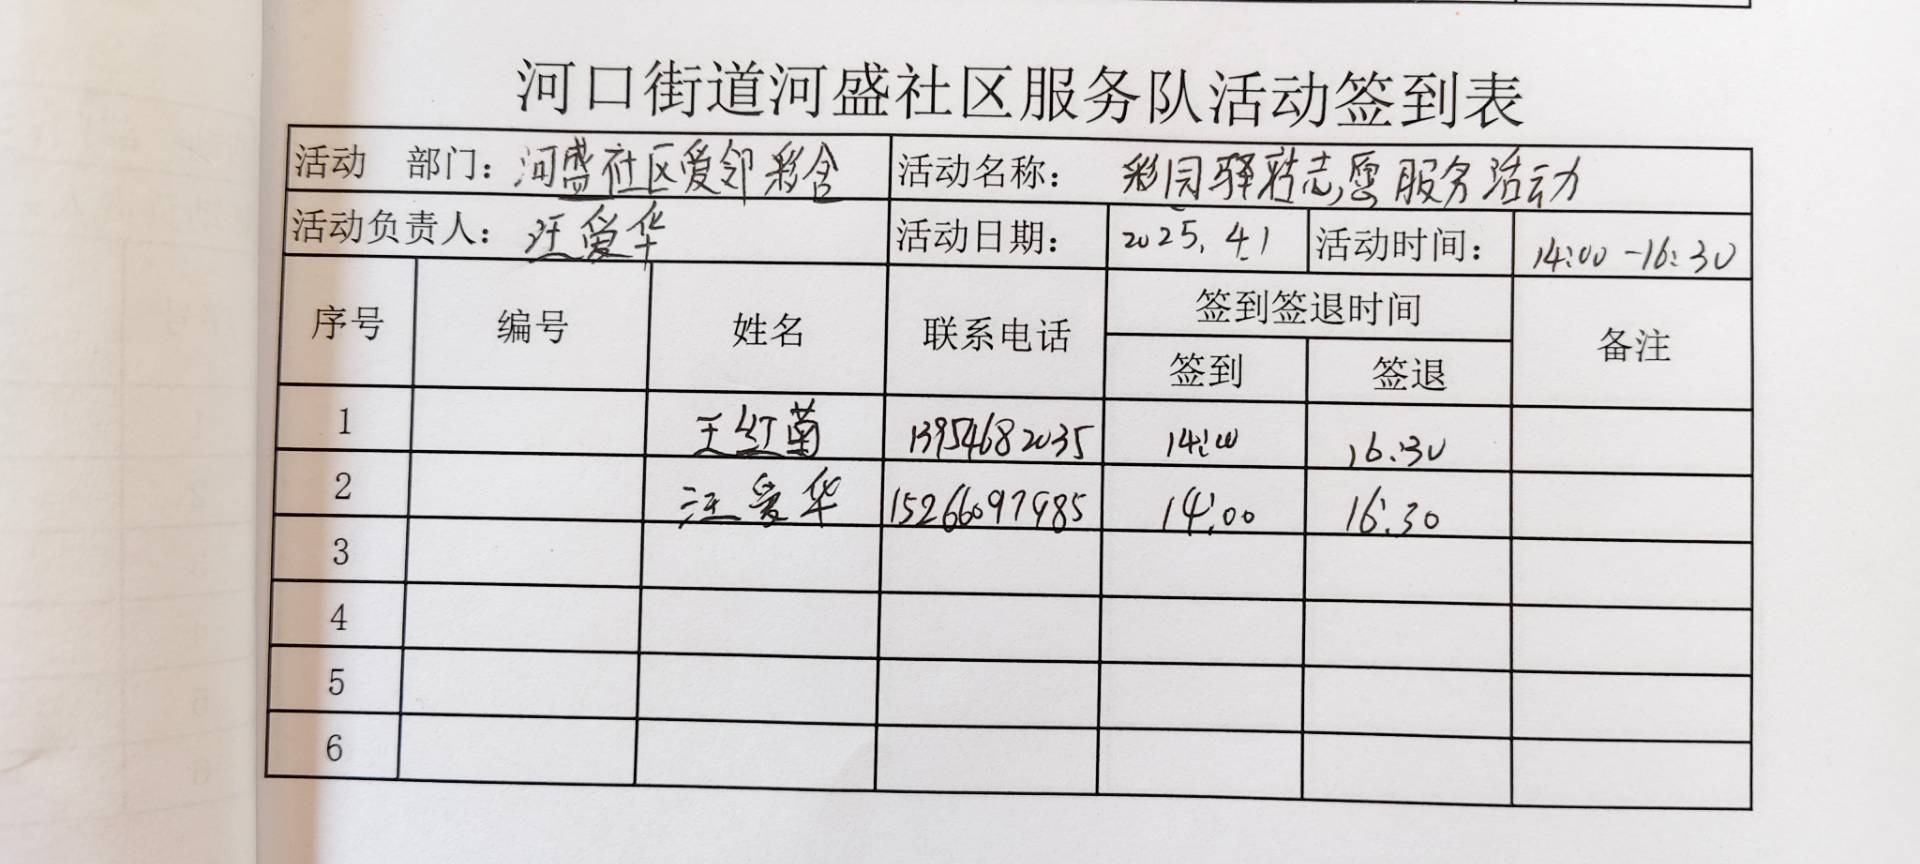 河口街道河盛社区服务队活动签到表
活动 部门：河盛社区爱邻彩含 活动名称： 彩园驿站志愿服务活动
活动负责人：汪爱华 活动日期： 2025.4.1 活动时间： 14:00-16:30
序号 编号 姓名 联系电话 签到签退时间 备注
签到 签退
1 王红菊 13954682035 14:00 16:30
2 汪爱华 15266097985 14:00 16:30
3
4
5
6